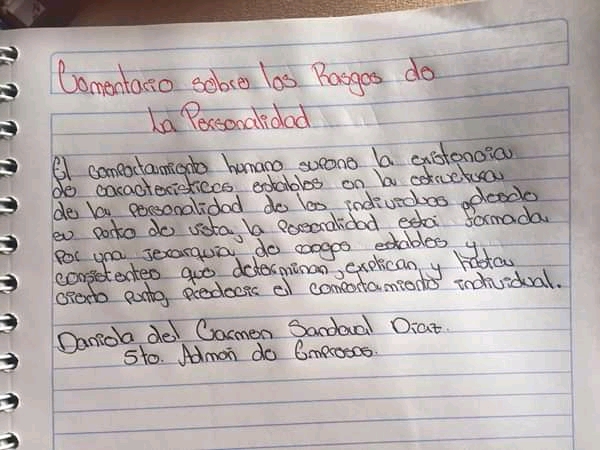 Comentario sobre los Rasgos de
La Personalidad
El comportamiento humano supone la existencia
de características estables en la estructura
de la personalidad de los individuos, desde
su punto de vista, la personalidad está formada
por una jerarquía de rasgos estables y
consistentes que determinan, explican y hasta
cierto punto, predecir el comportamiento individual.
Daniela del Carmen Sandoval Díaz.
5to. Admón de Empresas.